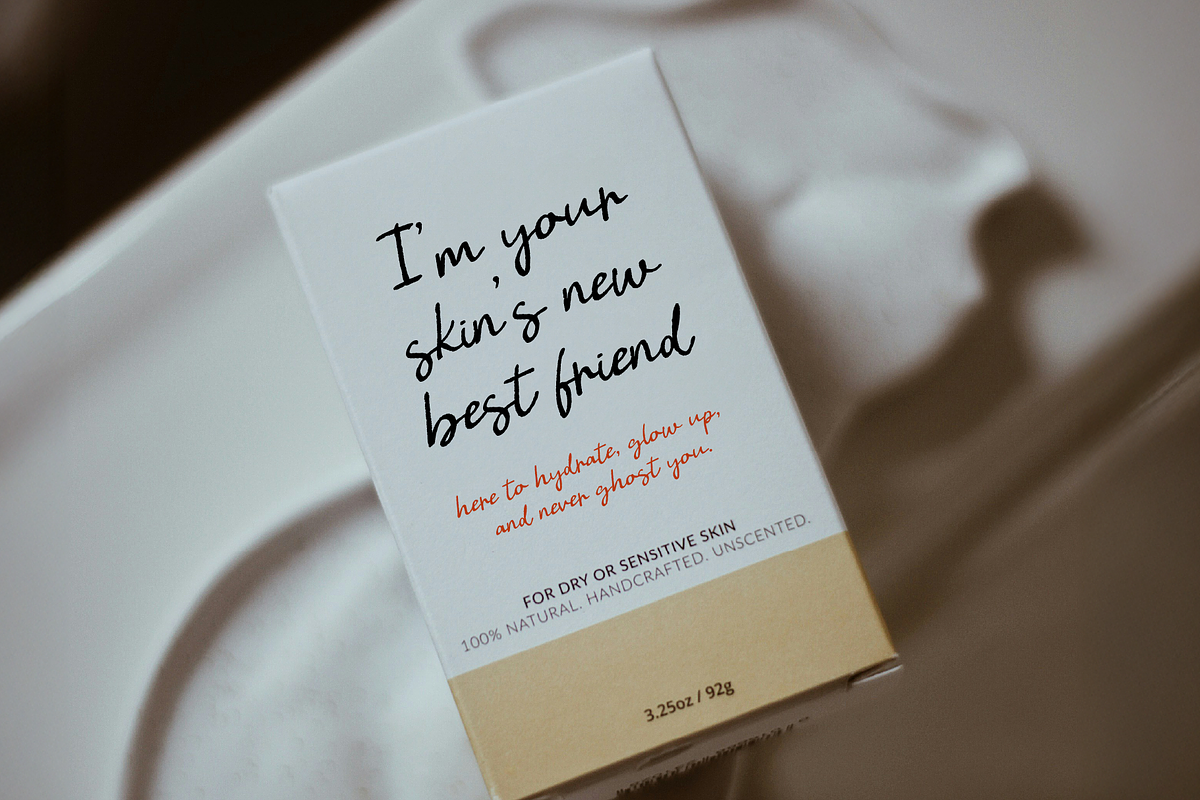 I'm your
skin's new
best friend
here to hydrate, glow up,
and never ghost you.
FOR DRY OR SENSITIVE SKIN
100% NATURAL. HANDCRAFTED. UNSCENTED.
3.25oz / 92g